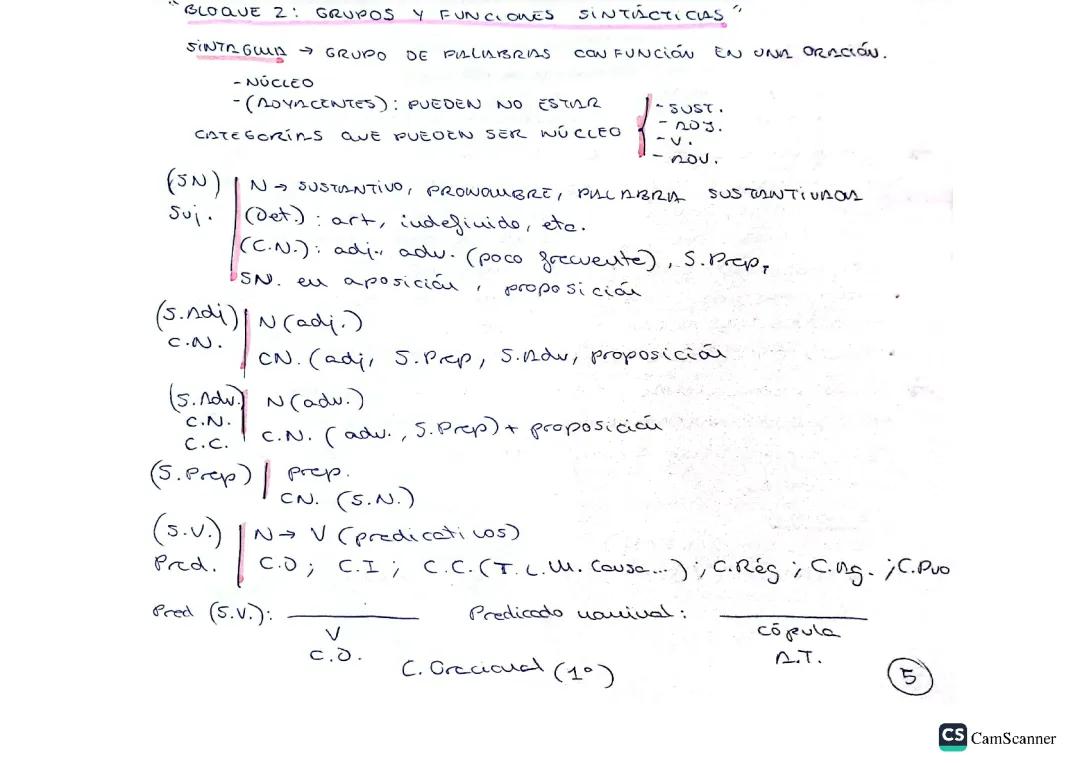 "BLOQUE 2: GRUPOS Y FUNCIONES SINTÁCTICAS"
SINTAGMA → GRUPO DE PALABRAS CON FUNCIÓN EN UNA ORACIÓN.
- NÚCLEO
- (ADYACENTES): PUEDEN NO ESTAR
CATEGORÍAS QUE PUEDEN SER NÚCLEO
- SUST.
- ADJ.
- V.
- ADV.
(SN) N → SUSTANTIVO, PRONOMBRE, PALABRA SUSTANTIVADA
Suj. (Det.): art, indefinido, etc.
(C.N.): adj., adv. (poco frecuente), S.Prep,
SN. en aposición, proposición
(S.Adj) N (adj.)
C.N. CN. (adj, S.Prep, S.Adv, proposición
(S.Adv.) N (adv.)
C.N.
C.C. C.N. (adv., S.Prep) + proposición
(S.Prep) prep.
CN. (S.N.)
(S.V.) N → V (predicativos)
Pred. C.D; C.I; C.C. (T. L. M. Causa...); C.Rég; C.Ag.; C.Pvo
Pred (S.V.): Predicado nominal:
V cópula
C.D. A.T.
C. Oracional (1º)
5
CS CamScanner